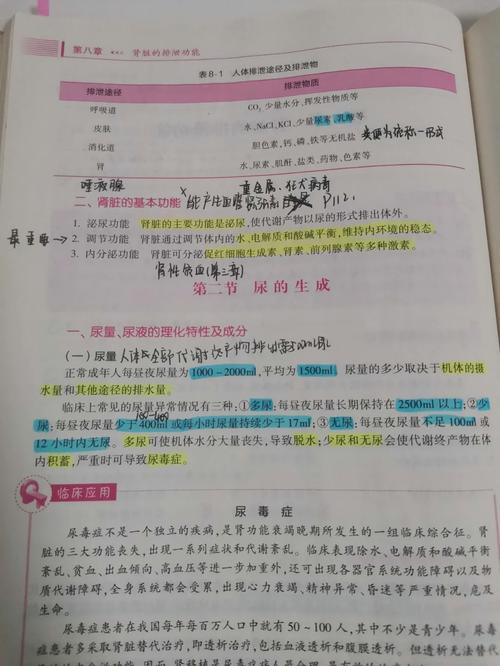 第八章 肾脏的排泄功能
表8-1 人体排泄途径及排泄物
排泄途径 排泄物质
呼吸道 CO₂、少量水分、挥发性物质等
皮肤 水、NaCl、KCl、少量尿素、乳酸等
消化道 胆色素,钙、镁、铁等无机盐
肾 水、尿素、肌酐、盐类、药物、色素等
唾液腺 重金属、狂犬病毒
二、肾脏的基本功能 P112.
1. 泌尿功能 肾脏的主要功能是泌尿,使代谢产物以尿的形式排出体外。
最重要→ 2. 调节功能 肾脏通过调节体内的水、电解质和酸碱平衡,维持内环境的稳态。
3. 内分泌功能 肾脏可分泌促红细胞生成素、肾素、前列腺素等多种激素。
肾性贫血(第三章)
第二节 尿的生成
一、尿量、尿液的理化特性及成分
(一)尿量
正常成年人每昼夜尿量为1000~2000ml,平均为1500ml。尿量的多少取决于机体的摄
水量和其他途径的排水量。
临床上常见的尿量异常情况有三种:①多尿:每昼夜尿量长期保持在2500ml以上;②少
尿:每昼夜尿量少于400ml或每小时尿量持续少于17ml;③无尿:每昼夜尿量不足100ml或
12小时内无尿。多尿可使机体水分大量丧失,导致脱水;少尿和无尿会使代谢终产物在体
内积蓄,严重时可导致尿毒症。
临床应用
尿毒症
尿毒症不是一个独立的疾病,是肾功能衰竭晚期所发生的一组临床综合征。肾
脏的三大功能丧失,出现一系列症状和代谢紊乱。临床表现除水、电解质和酸碱平衡
紊乱、贫血、出血倾向、高血压等进一步加重外,还可出现各器官系统功能障碍以及物
质代谢障碍,全身系统都会受累,出现心力衰竭、精神异常、昏迷等严重情况,危及
生命。
尿毒症患者在我国每年每百万人口中就有50~100人,其中不少是青少年。尿毒
症患者多采取肾脏替代治疗,即透析治疗,包括血液透析和腹膜透析。但透析无法替代